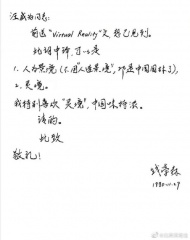 汪成为同志:
前送“Virtual Reality”文,想已见到。
此词中译,可以是:
1. 人为景境(不用“人造景境”,那是中国园林了);
2. 灵境。
我特别喜欢“灵境”,中国味特浓。
请酌。
此致
敬礼!
钱学森
1990.11.27